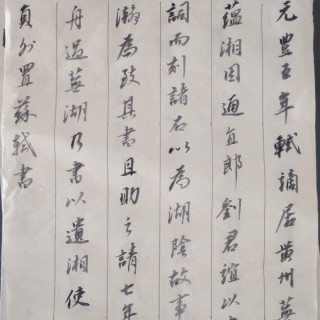 元豐五年軾謫居黃州蕪
蘊湘因通直郎劉君誼以
詞而刻諸石以為湖陰故事
瀚為致其書且助之請七年
舟過蕪湖乃書以遺湘使
員外置蘇軾書